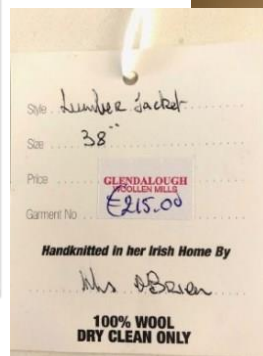 Style Lumber Jacket
Size 38"
Price GLENDALOUGH
WOOLLEN MILLS
Garment No €215.00
Handknitted in her Irish Home By
Mrs O'Brien
100% WOOL
DRY CLEAN ONLY